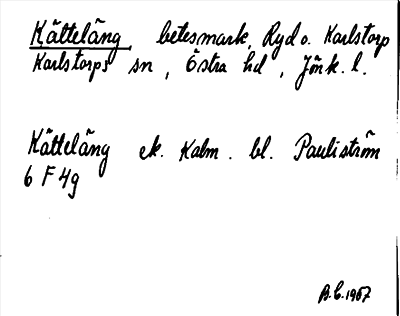 Kätteläng, betesmark, Ryd o. Karlstorp
Karlstorps sn, Östra hd, Jönk. l.
Kätteläng ek. Kalm. bl. Pauliström
6 F 4g
B.E. 1967